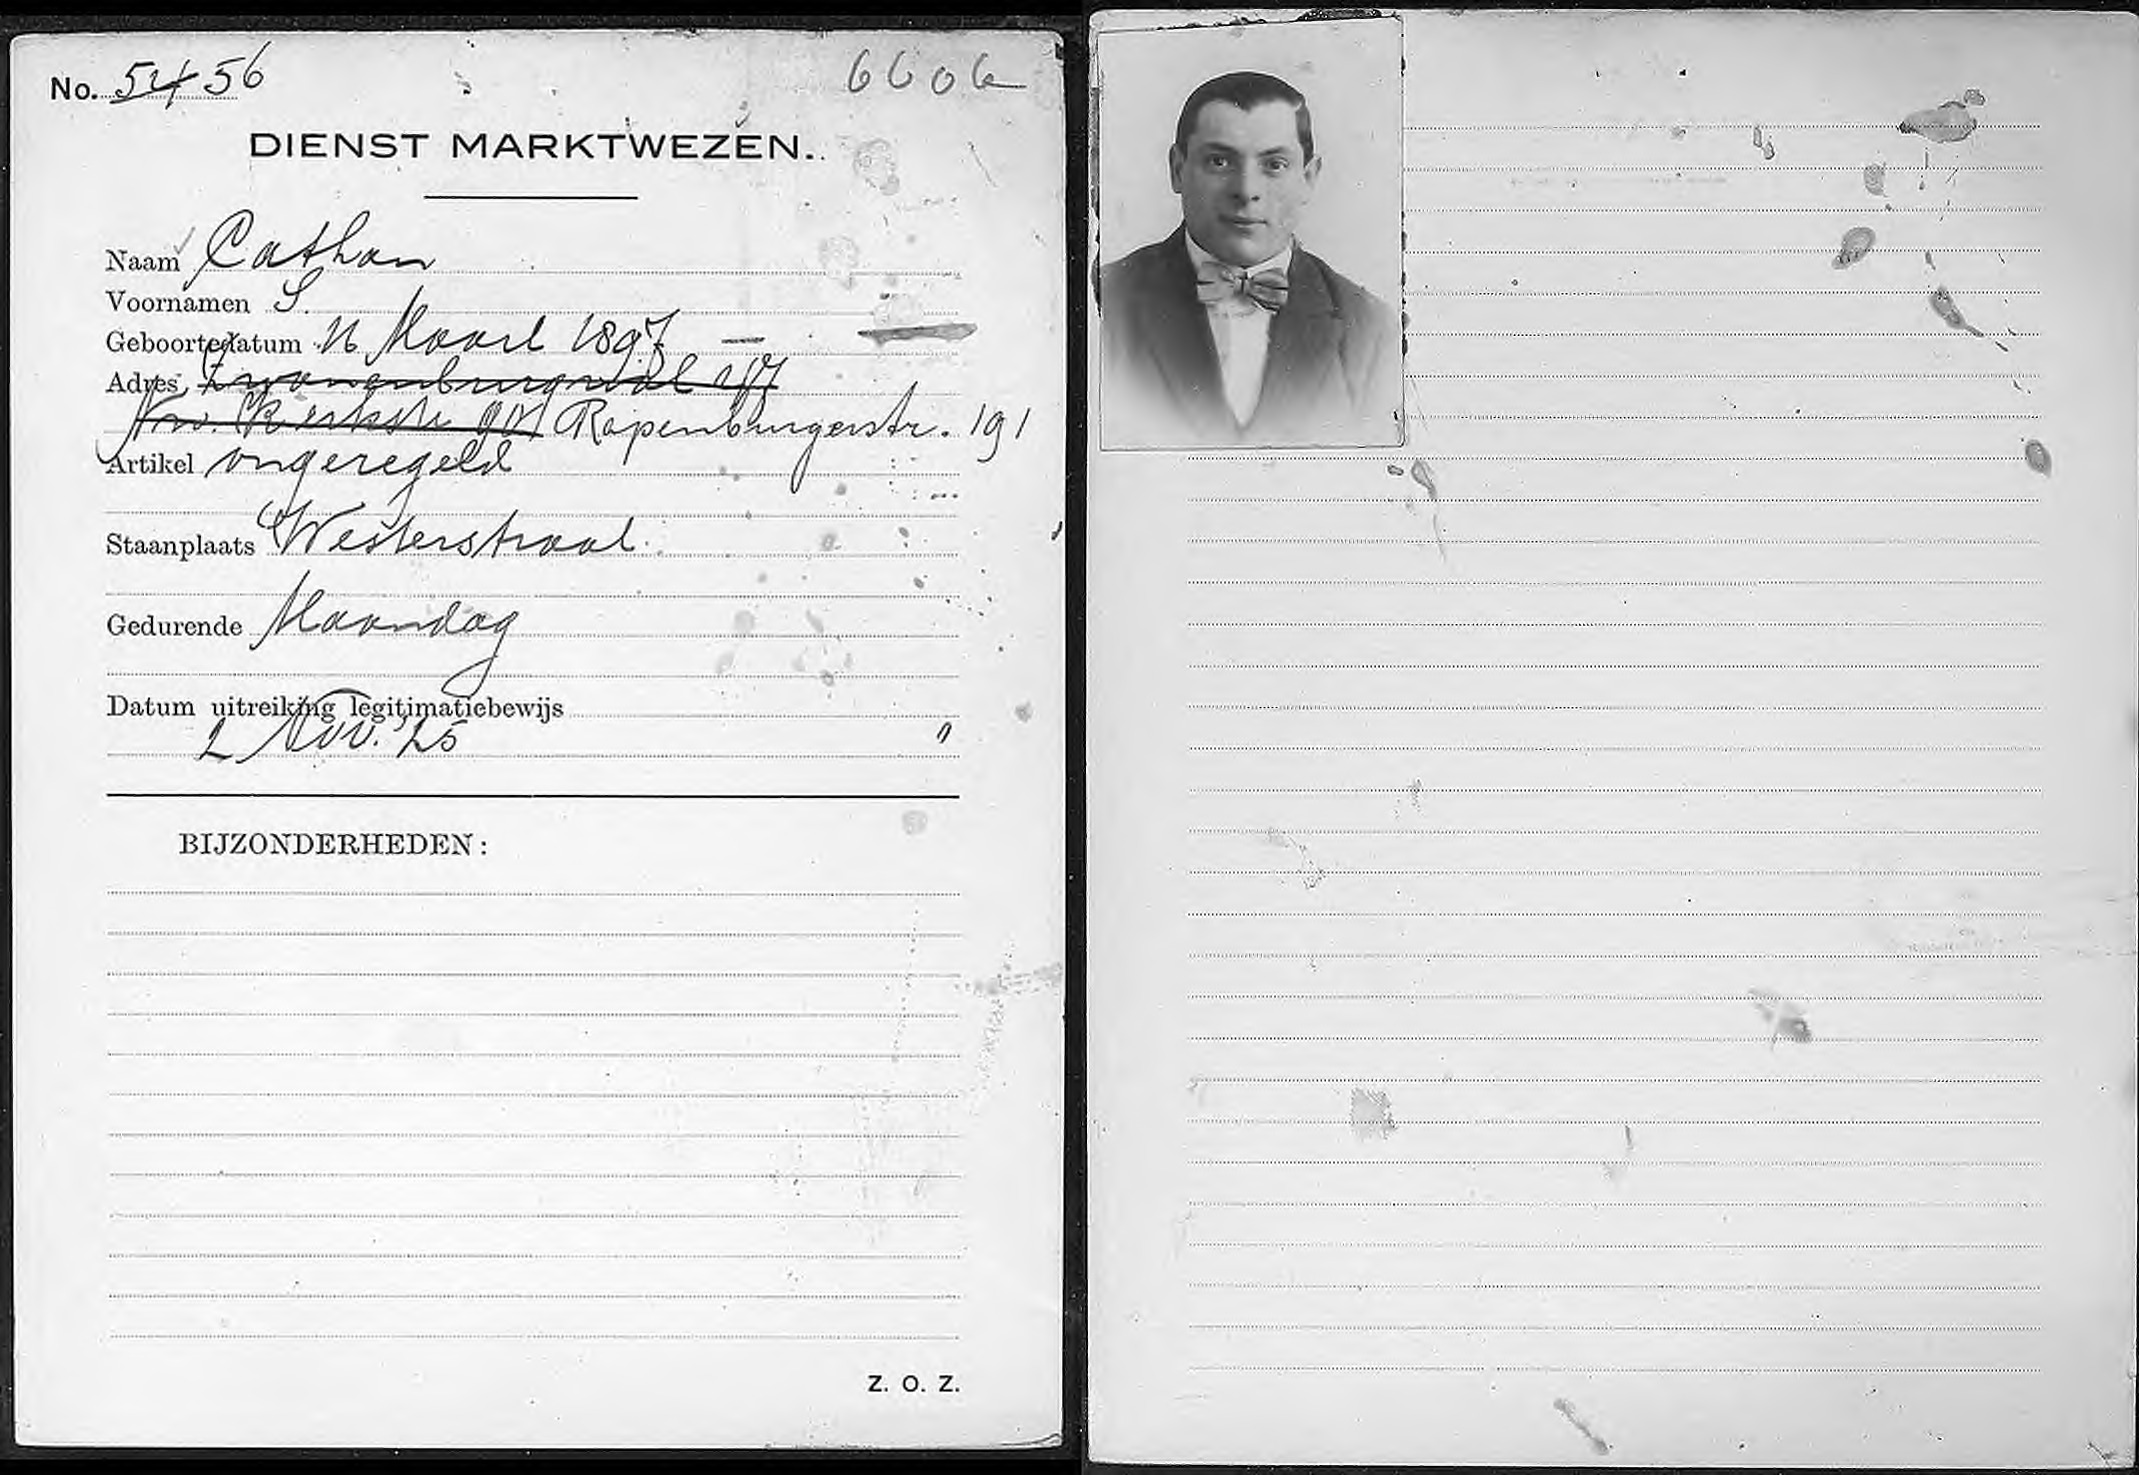 No. 5456
660
DIENST MARKTWEZEN.
Naam Cathan
Voornamen S.
Geboortedatum 16 Maart 1897
Adres Zwanenburgwal
Nw. Kerkstr 90 Rapenburgerstr. 191
Artikel ongeregeld
Staanplaats Westerstraat
Gedurende Maandag
Datum uitreiking legitimatiebewijs
2 Nov. '25
BIJZONDERHEDEN:
Z. O. Z.